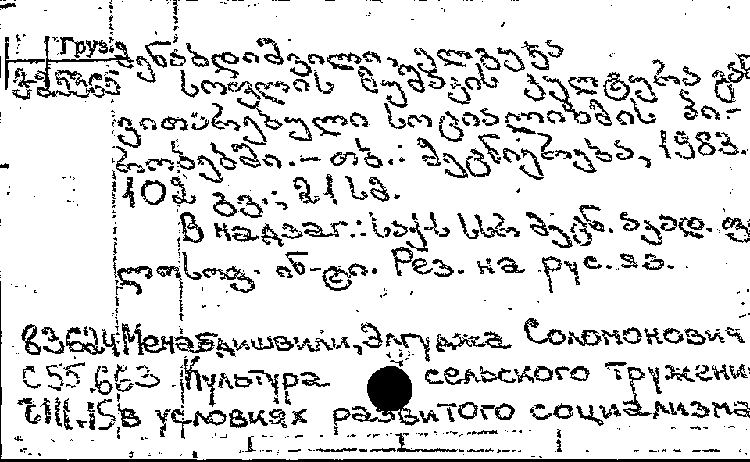 Груз
მენაბდიშვილი, ელგუჯა
სოფლის მუშაკის კულტურა გან-
ვითარებული სოციალიზმის პი-
რობებში. – თბ.: მეცნიერება, 1983.
102 გვ.; 21 სმ.
В надзаг.: საქ-ს სსრ მეცნ. აკად. ფი
ლოსოფ. ინ-ტი. Рез. на рус. яз.
83624 Менабдишвили, Элгуджа Соломонович
С55.663 Культура сельского тружени
в условиях развитого социализма